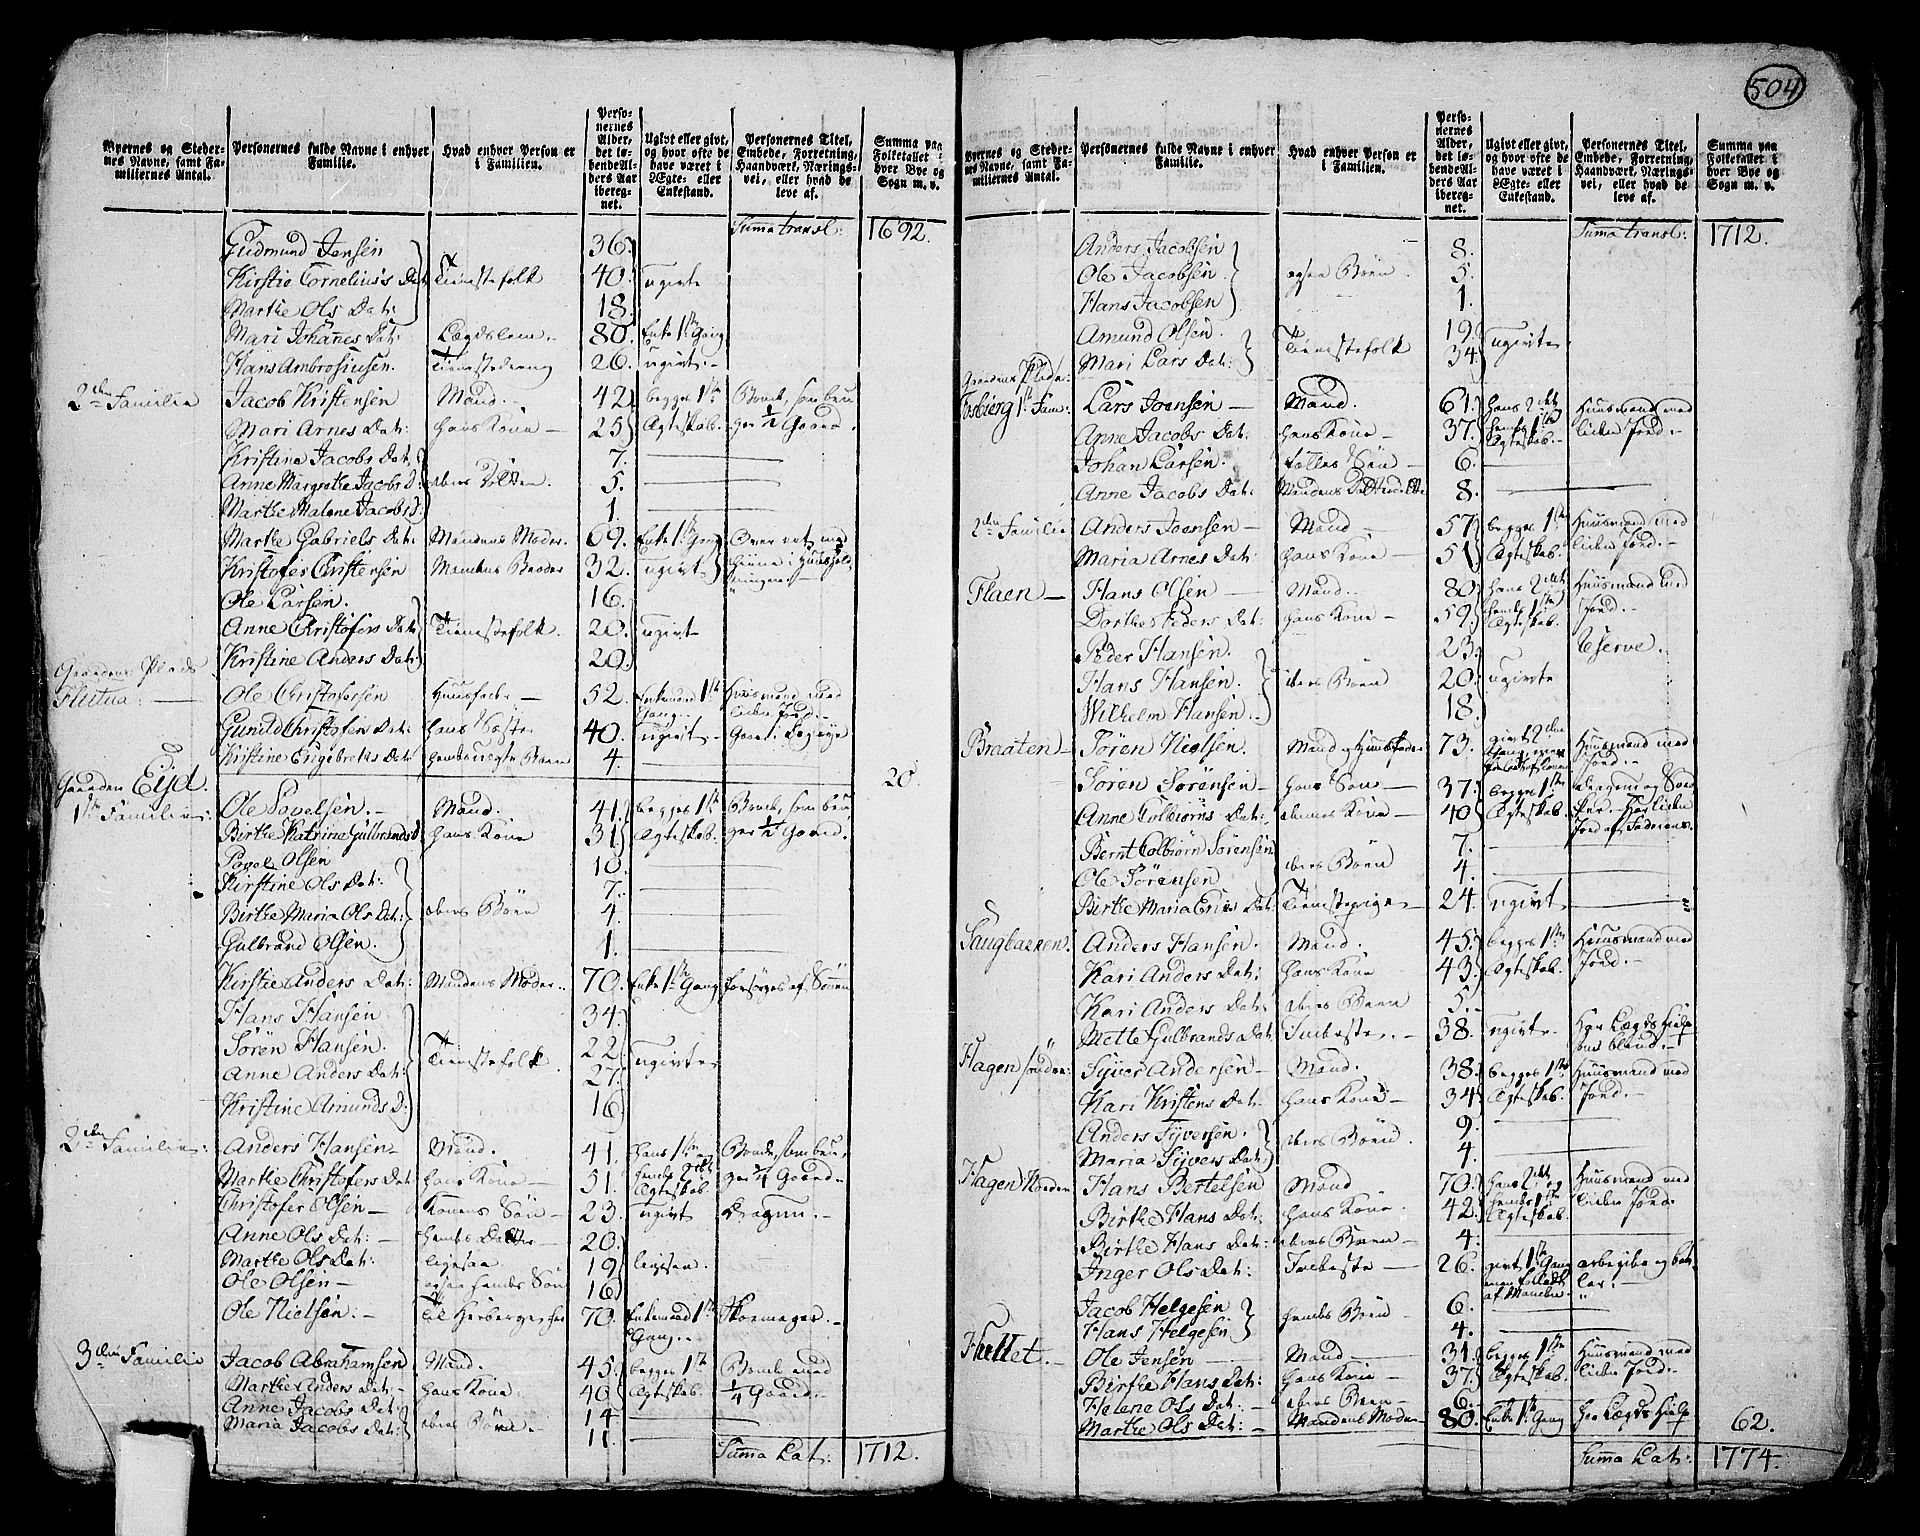 504
Byernes og Stedernes Navne, samt Familiernes Antal.
Personernes fulde Navne i enhver Familie.
Hvad enhver Person er i Familien.
Personernes Alder, det løbende Alders Aar iberegnet.
Ugivt eller givt, og hvor ofte de have været i Ægte- eller Enkestand.
Personernes Titel, Embede, Forretning, Haandværk, Næringsvei, eller hvad de leve af.
Summa paa Folketallet i hver Bye og Sogn m. v.
Suma transl: 1692.
Gudmund Jensen 36.
Kirstie Cornelius's Dat: Tienestefolk 40. ugivte
Marthe Ols Dat: 18.
Mari Johannes Dat: Lægdslem. 80. Enke 1ste Gang
Hans Ambrosiusen. Tienestedreng 26. ugivt.
2den Familie Jacob Kristensen Mand. 42 begges 1ste Bonde, som bru
Mari Arnes Dat: hans Kone 25 Ægteskab. ger 1/2 Gaard.
Kristine Jacobs Dat: 7.
Anne Margrethe Jacobs D: deres Døttre. 5.
Marthe Malene Jacobs D: 1.
Marthe Gabriels Dat: Mandens Moder. 69. Enke 1ste Gang
Kristofer Christensen Mandens Broder 32. ugivt
Ole Larsen. 16.
Anne Christofers Dat: Tienestefolk. 20. ugivt
Kristine Anders Dat: 20.
Gaardens Plads
Flestua: Ole Christofersen Huusfader 52. Enkemand 1ste Huusmand med
Gang. liden Jord.
Gunild Christofers Dat: hans Søster 40. ugivt
Kristine Engebreths Dat: hendes uægte Barn 4. 20.
Gaarden Eijd.
1ste Familie: Ole Povelsen. Mand. 41. begges 1ste Bonde, som bru
Birthe Katrina Gulbrands D hans Kone 31. Ægteskab. ger 1/2 Gaard.
Povel Olsen 10.
Kirstine Ols Dat: 7.
Birthe Maria Ols Dat: deres Børn 4.
Gulbrand Olsen. 1.
Kirstie Anders Dat: Mandens Moder. 70. Enke 1ste Gang forsørges af Sønnen
Hans Hansen 34.
Søren Hansen. 22.
Anne Anders Dat: Tienestefolk. 27. ugivte
Kristine Amunds D: 16.
2den Familie: Anders Hansen Mand. 41. hans 1ste og Bonde, som bru,
Marthe Christofers Dat: hans Kone 51. hendes 2det Ægteskab. ger 1/4 Gaard.
Christofer Olsen Konens Søn 23. ugivt Dragun.
Anne Ols Dat: hendes Datter 20.
Marthe Ols Dat: ligesaa 19. ligesaa.
Ole Olsen ogsaa hendes Søn 16.
Ole Nielsen. Til Herberge hos 70. Enkemand 1ste Gang. Skoemager.
3die Familie Jacob Abrahamsen Mand. 45. begges 1ste Bonde med
Marthe Anders Dat: hans Kone. 40 Ægteskab. 1/4 Gaard.
Anne Jacobs Dat: 14.
Maria Jacobs Dat: deres Børn. 11.
Suma Lat: 1712.
Byernes og Stedernes Navne, samt Familiernes Antal.
Personernes fulde Navne i enhver Familie.
Hvad enhver Person er i Familien.
Personernes Alder, det løbende Alders Aar iberegnet.
Ugivt eller givt, og hvor ofte de have været i Ægte- eller Enkestand.
Personernes Titel, Embede, Forretning, Haandværk, Næringsvei, eller hvad de leve af.
Summa paa Folketallet i hver Bye og Sogn m. v.
Suma transl: 1712.
Anders Jacobsen 8.
Ole Jacobsen. ogsaa Børn. 5.
Hans Jacobsen 1.
Amund Olsen. 19.
Mari Lars Dat: Tienestefolk 34. ugivte
Gaardens Plads:
1ste Fam: Lars Joensen Mand. 61. hans 2det Huusmand med
Anne Jacobs Dat: hans Kone 37. hendes 1ste Ægteskab. liden Jord.
Johan Larsen. fælles Søn 6.
Anne Jacobs Dat: Mandens 8.
2den Familie Anders Joensen Mand 57. begges 1ste Huusmand med
Maria Arnes Dat: hans Kone 51. Ægteskab. liden Jord.
Flaen Hans Olsen Mand. 80. hans 2det Huusmand med
Dorthe Peders Dat: hans Kone. 59. hendes 1ste Ægteskab. Jord.
Peder Hansen. 23. Reserve.
Hans Hansen. deres Børn 20. ugivte
Wilhelm Hansen. 18.
Braaten Søren Nielsen. Mand og Huusfader 73. givt 2den Gang, men Huusmand med
Jord.
Søren Sørensen hans Søn 37. begges 1ste
Anne Colbiørns Dat: dennes Kone 40. Ægteskab.
Bernt Colbiørn Sørensen 7.
Ole Sørensen deres Børn 4.
Birthe Maria Dat: Tienestepige 24. ugivt
Saugbakken. Anders Hansen. Mand. 45. begges 1ste Huusmand med
Kari Anders Dat: hans Kone 43. Ægteskab. Jord.
Kari Anders Dat: deres Barn 5.
Mette Gulbrands Dat: Inderste. 38. ugivt. Har Lægds Hielp
Hagen søndre: Syver Andersen Mand. 38. begges 1ste Huusmand med
Kari Kristens Dat: hans Kone 34. Ægteskab. Jord.
Anders Syversen. 9.
Maria Syvers Dat: deres Børn. 4.
Hagen Nordre Hans Bertelsen Mand 70. hans 2det og Huusmand med
Birthe Hans Dat: hans Kone. 42. hendes 1ste Ægteskab. liden Jord.
Birthe Hans Dat: deres Barn 4.
Inger Ols Dat: Inderste 26. givt 1ste Gang men forladt af Manden
Jacob Helgesen 6.
Hans Helgesen hendes Børn 4.
Ole Jensen Mand 31. begges 1ste Huusmand med
Birthe Hans Dat: hans Kone 37. Ægteskab. liden Jord.
Helene Ols Dat: deres Barn 6.
Marthe Ols Dat: Mandens Moder 80. Enke 1ste Gang har Lægds Hielp 62.
Suma Lat: 1774.